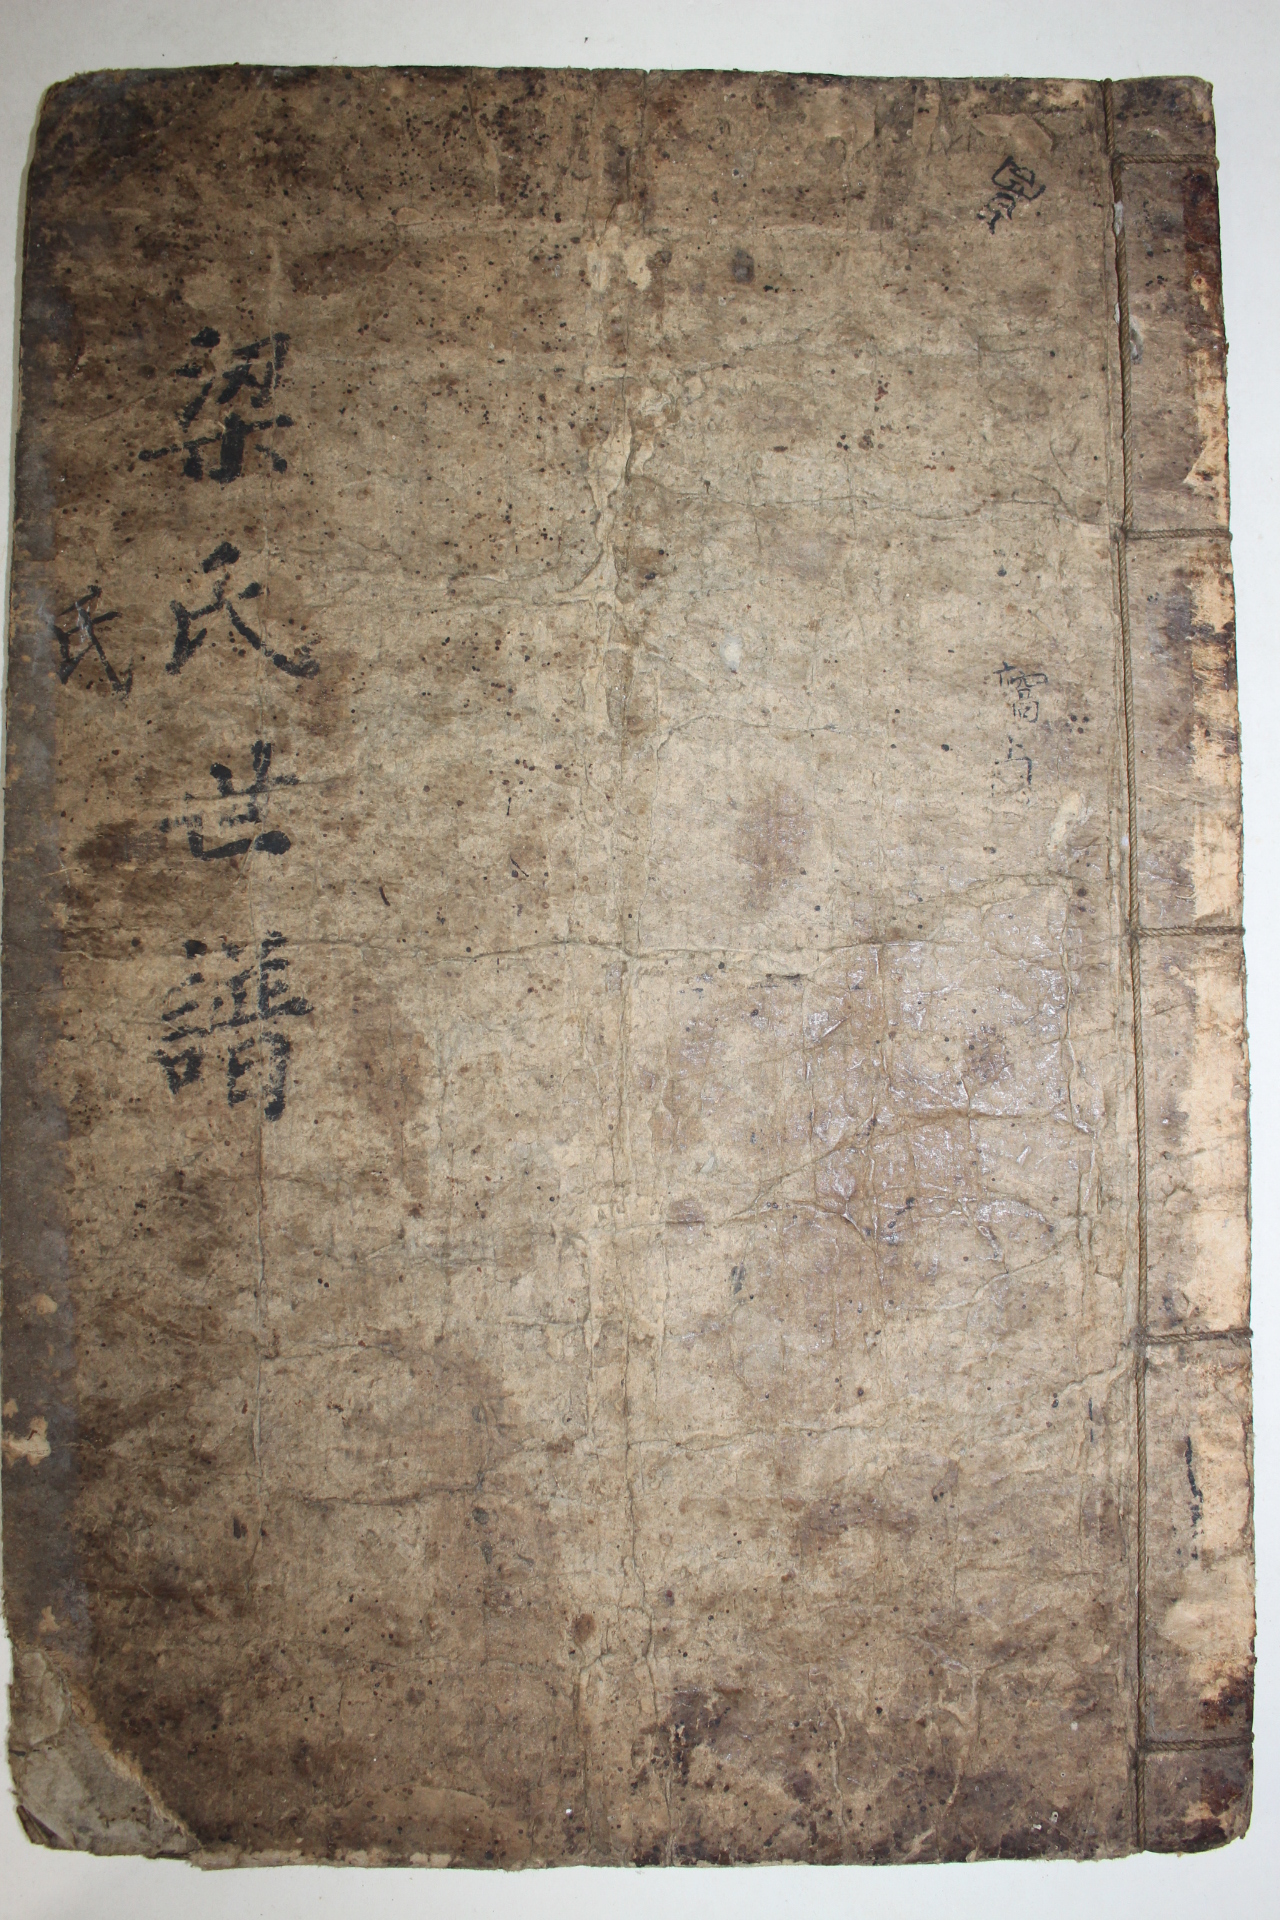 梁氏世譜
氏